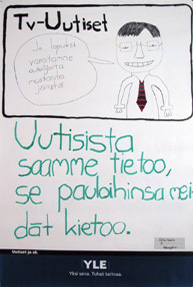 Tv-Uutiset
Ja lopuksi
varoitamme
Uutisista
saamme tietoo,
se pauloihinsa mei-
dät kietoo.
Uutiset ja sä.
YLE
Yksi sana. Tuhat tarinaa.